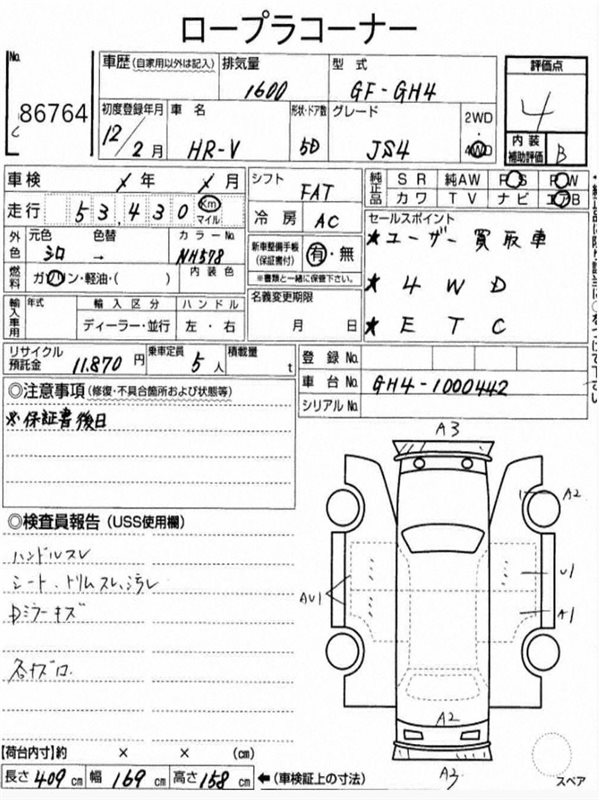 ロープラコーナー
No.
86764
車歴(自家用以外は記入)
排気量
1600
型 式
GF-GH4
評価点
4
内装
補助評価
B
初度登録年月
12/2月
車 名
HR-V
形状・ドア数
5D
グレード
JS4
2WD
・
4WD
車検 年 月
走行 53,430 Km マイル
シフト
FAT
冷房
AC
純正品
SR 純AW PS PW
カワ TV ナビ エアB
外色
元色 色替
シロ →
カラーNo.
NH578
燃料
ガソリン・軽油・( )
内 装 色
新車整備手帳
(保証書付)
有・無
※書類と一緒に保管下さい。
セールスポイント
★ユーザー買取車
★4WD
★ETC
輸入車用
年式
輸 入 区 分
ディーラー・並行
ハ ン ド ル
左 ・ 右
名義変更期限
月 日
リサイクル
預託金
11,870円
乗車定員
5人
積載量
t
登 録 No.
車 台 No.
GH4-1000442
シリアル No.
◎注意事項(修復・不具合箇所および状態等)
※保証書後日
◎検査員報告(USS使用欄)
ハンドルスレ
シート、トリムスレ、汚レ
Dミラーキズ
各キズ口.
A3
A2
U1
A1
AU1
A2
A3
スペア
【荷台内寸】約 × × (cm)
長さ 409 cm 幅 169 cm 高さ 158 cm ←(車検証上の寸法)